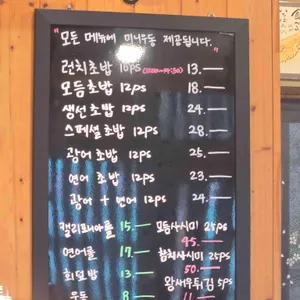 "모든 메뉴에 미니우동 제공됩니다."
런치초밥 10ps 13.—
모듬초밥 12ps 18.—
생선초밥 12ps 24.—
스페셜초밥 12ps 28.—
광어초밥 12ps 25.—
연어초밥 12ps 23.—
광어 + 연어 12ps 24.—
캘리포니아롤 15.— 모듬사시미
45.—
연어롤 17.— 참치사시미
50.—
회덮밥 13.— 왕새우튀김 5ps
우동 8 11.—